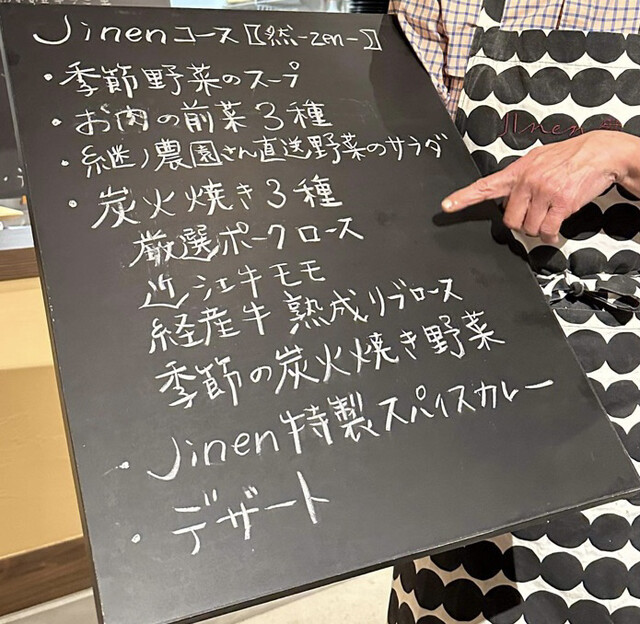 Jinenコース〖然-zen-〗
・季節野菜のスープ
・お肉の前菜3種
・継ノ農園さん直送野菜のサラダ
・炭火焼き3種
厳選ポークロース
近江牛モモ
経産牛熟成リブロース
季節の炭火焼き野菜
・Jinen特製スパイスカレー
・デザート
Jinen